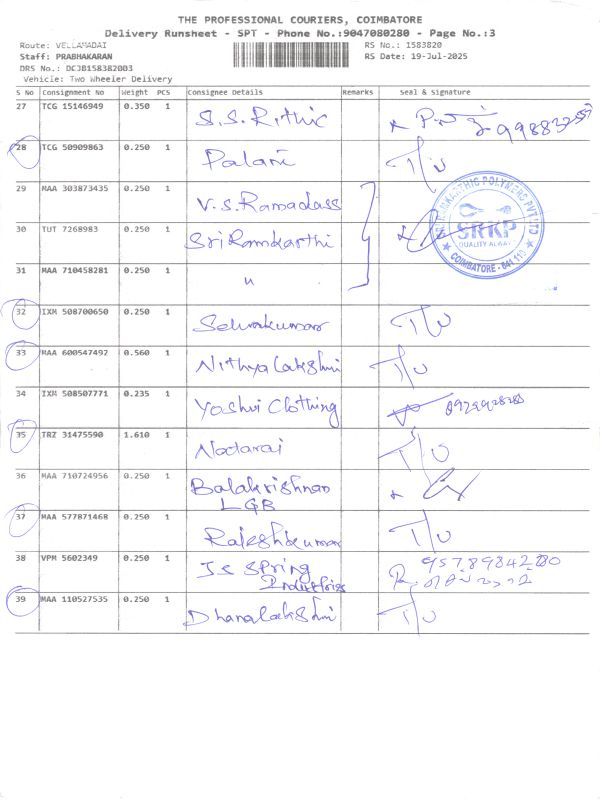 THE PROFESSIONAL COURIERS, COIMBATORE
Delivery Runsheet - SPT - Phone No.:9047080280 - Page No.:3
Route: VELLAMADAI RS No.: 1583820
Staff: PRABHAKARAN RS Date: 19-Jul-2025
DRS No.: DCJB158382003
Vehicle: Two Wheeler Delivery
S No Consignment No Weight PCS Consignee Details Remarks Seal & Signature
27 TCG 15146949 0.350 1 S.S. Rithic
28 TCG 50909863 0.250 1 Palani T/U
29 MAA 303873435 0.250 1 V.S. Ramadass
30 TUT 7268983 0.250 1 Sri Ramkarthi
31 MAA 710458281 0.250 1 "
SRKP
QUALITY
COIMBATORE - 641 110
32 IXM 508700650 0.250 1 Selvakumar T/U
33 MAA 600547492 0.560 1 Nithya Lakshmi T/U
34 IXM 508507771 0.235 1 Yashvi Clothing
35 TRZ 31475590 1.610 1 Nadarai T/U
36 MAA 710724956 0.250 1 Balakrishnan
LGB
37 MAA 577871468 0.250 1 Rajeshkumar T/U
38 VPM 5602349 0.250 1 Js Spring
Industries
39 MAA 110527535 0.250 1 Dhanalakshmi T/U